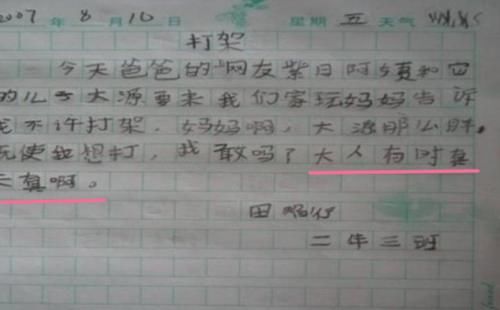 2007年8月10日 星期五 天气
打架
今天爸爸的网友紫日阿姨和
的儿子大源要来我们家玩妈妈告诉
我不许打架。妈妈啊,大源那么胖。
既使我想打,我敢吗?大人有时真
天真啊。
田
二年三班